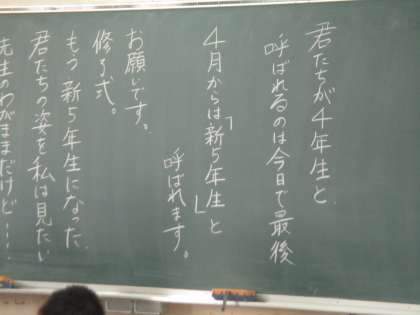 君たちが4年生と
呼ばれるのは今日で最後
4月からは「新5年生」と
呼ばれます。
お願いです。
修了式。
もう新5年生になった
君たちの姿を私は見たい
先生のわがままだけど・・・